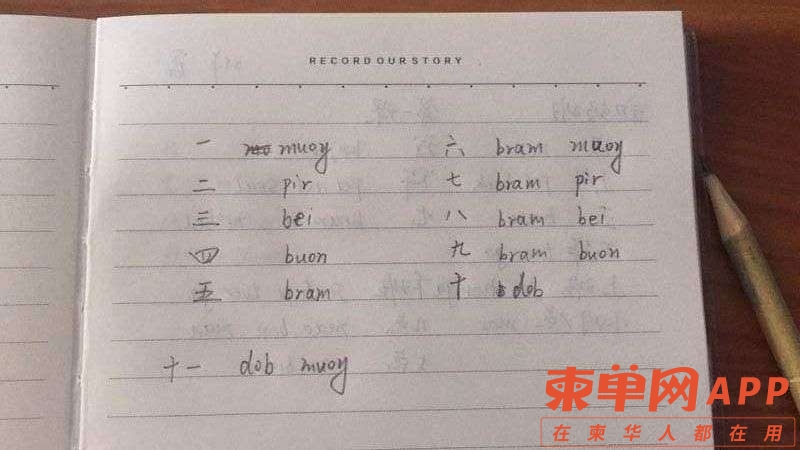 RECORD OUR STORY
一 muoy 六 bram muoy
二 pir 七 bram pir
三 bei 八 bram bei
四 buon 九 bram buon
五 bram 十 dob
十一 dob muoy
柬单网APP
在柬华人都在用